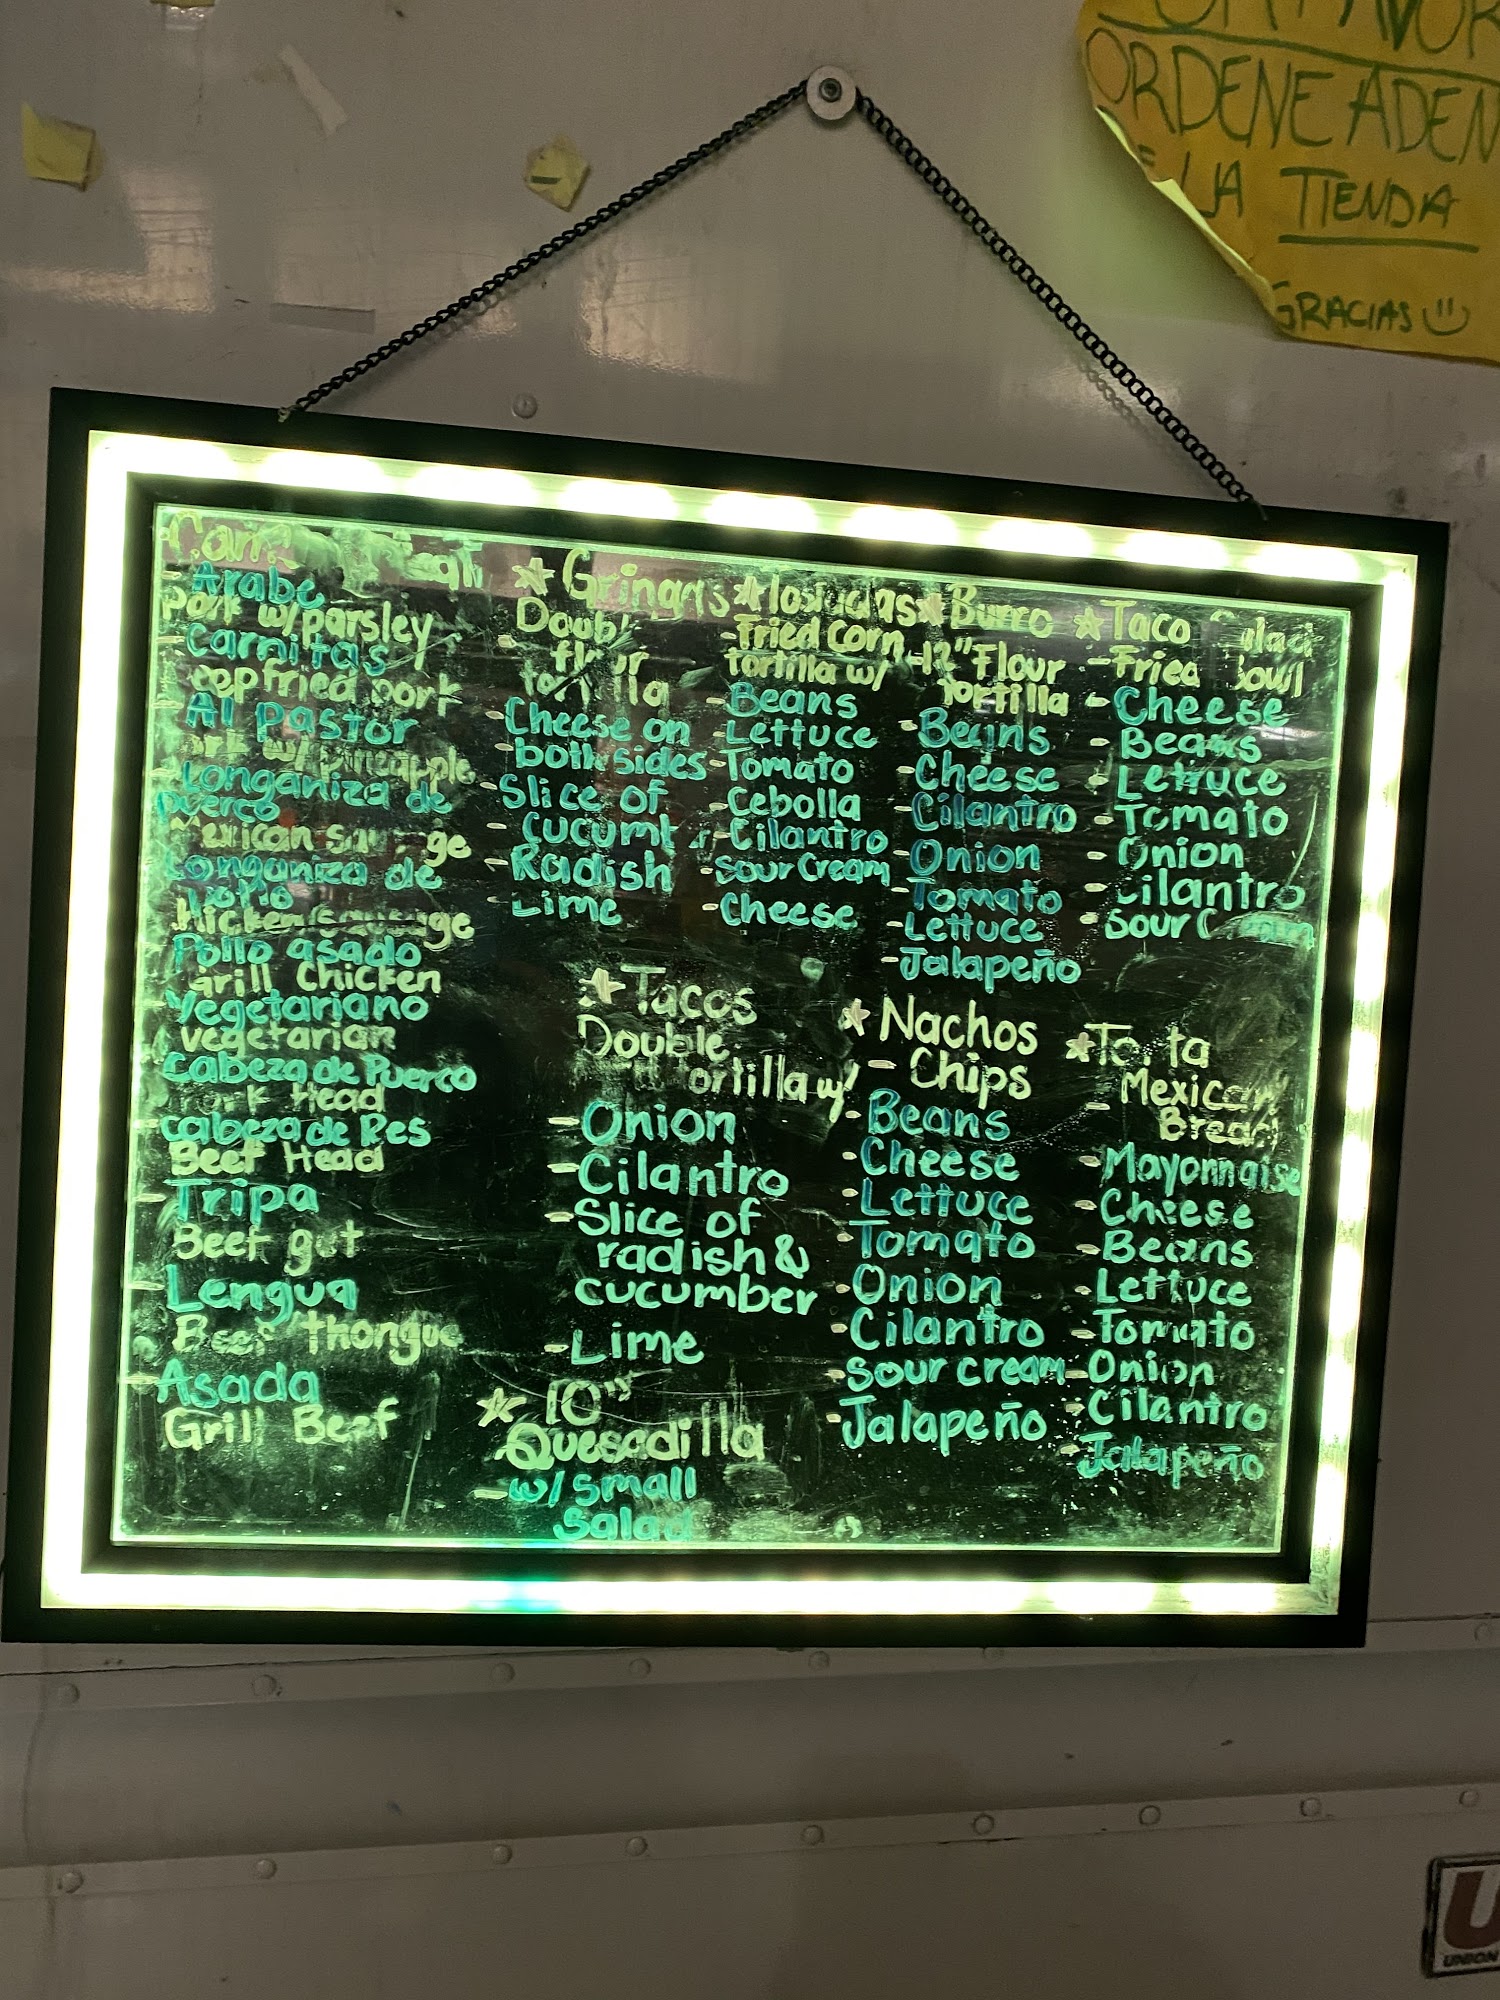 POR FAVOR
ORDENE ADEN
LA TIENDA
GRACIAS
Arabe
Pork w/parsley
- Carnitas
eepfried pork
- Al Pastor
ork w/ pineapple
- Longaniza de
puerco
Mexican sau ge
- Longaniza de
Pollo
hicken Sausage
- Pollo asado
Grill Chicken
- Vegetariano
Vegetarian
Cabeza de Puerco
Pork Head
- Cabeza de Res
Beef Head
- Tripa
Beef gut
- Lengua
Beef thongue
- Asada
Grill Beef
☆ Gringas
- Doubl
flour
tortilla
- Cheese on
- both sides
- Slice of
cucumb r
- Radish
- Lime
☆ Tostadas
- Fried Corn
tortilla w/
- Beans
- Lettuce
- Tomato
- Cebolla
- Cilantro
- Sour Cream
- Cheese
☆ Burro
- 12" Flour
Tortilla
- Beans
- Cheese
- Cilantro
- Onion
- Tomato
- Lettuce
- Jalapeño
☆ Taco Salad
- Fried Bowl
- Cheese
- Beans
- Lettuce
- Tomato
- Onion
- Cilantro
- Sour Cream
☆ Tacos
Double
Tortilla w/
- Onion
- Cilantro
- Slice of
radish &
cucumber
- Lime
☆ 10"
Quesadilla
- w/ Small
Salad
☆ Nachos
- Chips
- Beans
- Cheese
- Lettuce
- Tomato
- Onion
- Cilantro
- Sour cream
- Jalapeño
☆ Torta
- Mexican
Bread
- Mayonnaise
- Cheese
- Beans
- Lettuce
- Tomato
- Onion
- Cilantro
- Jalapeño
UNION